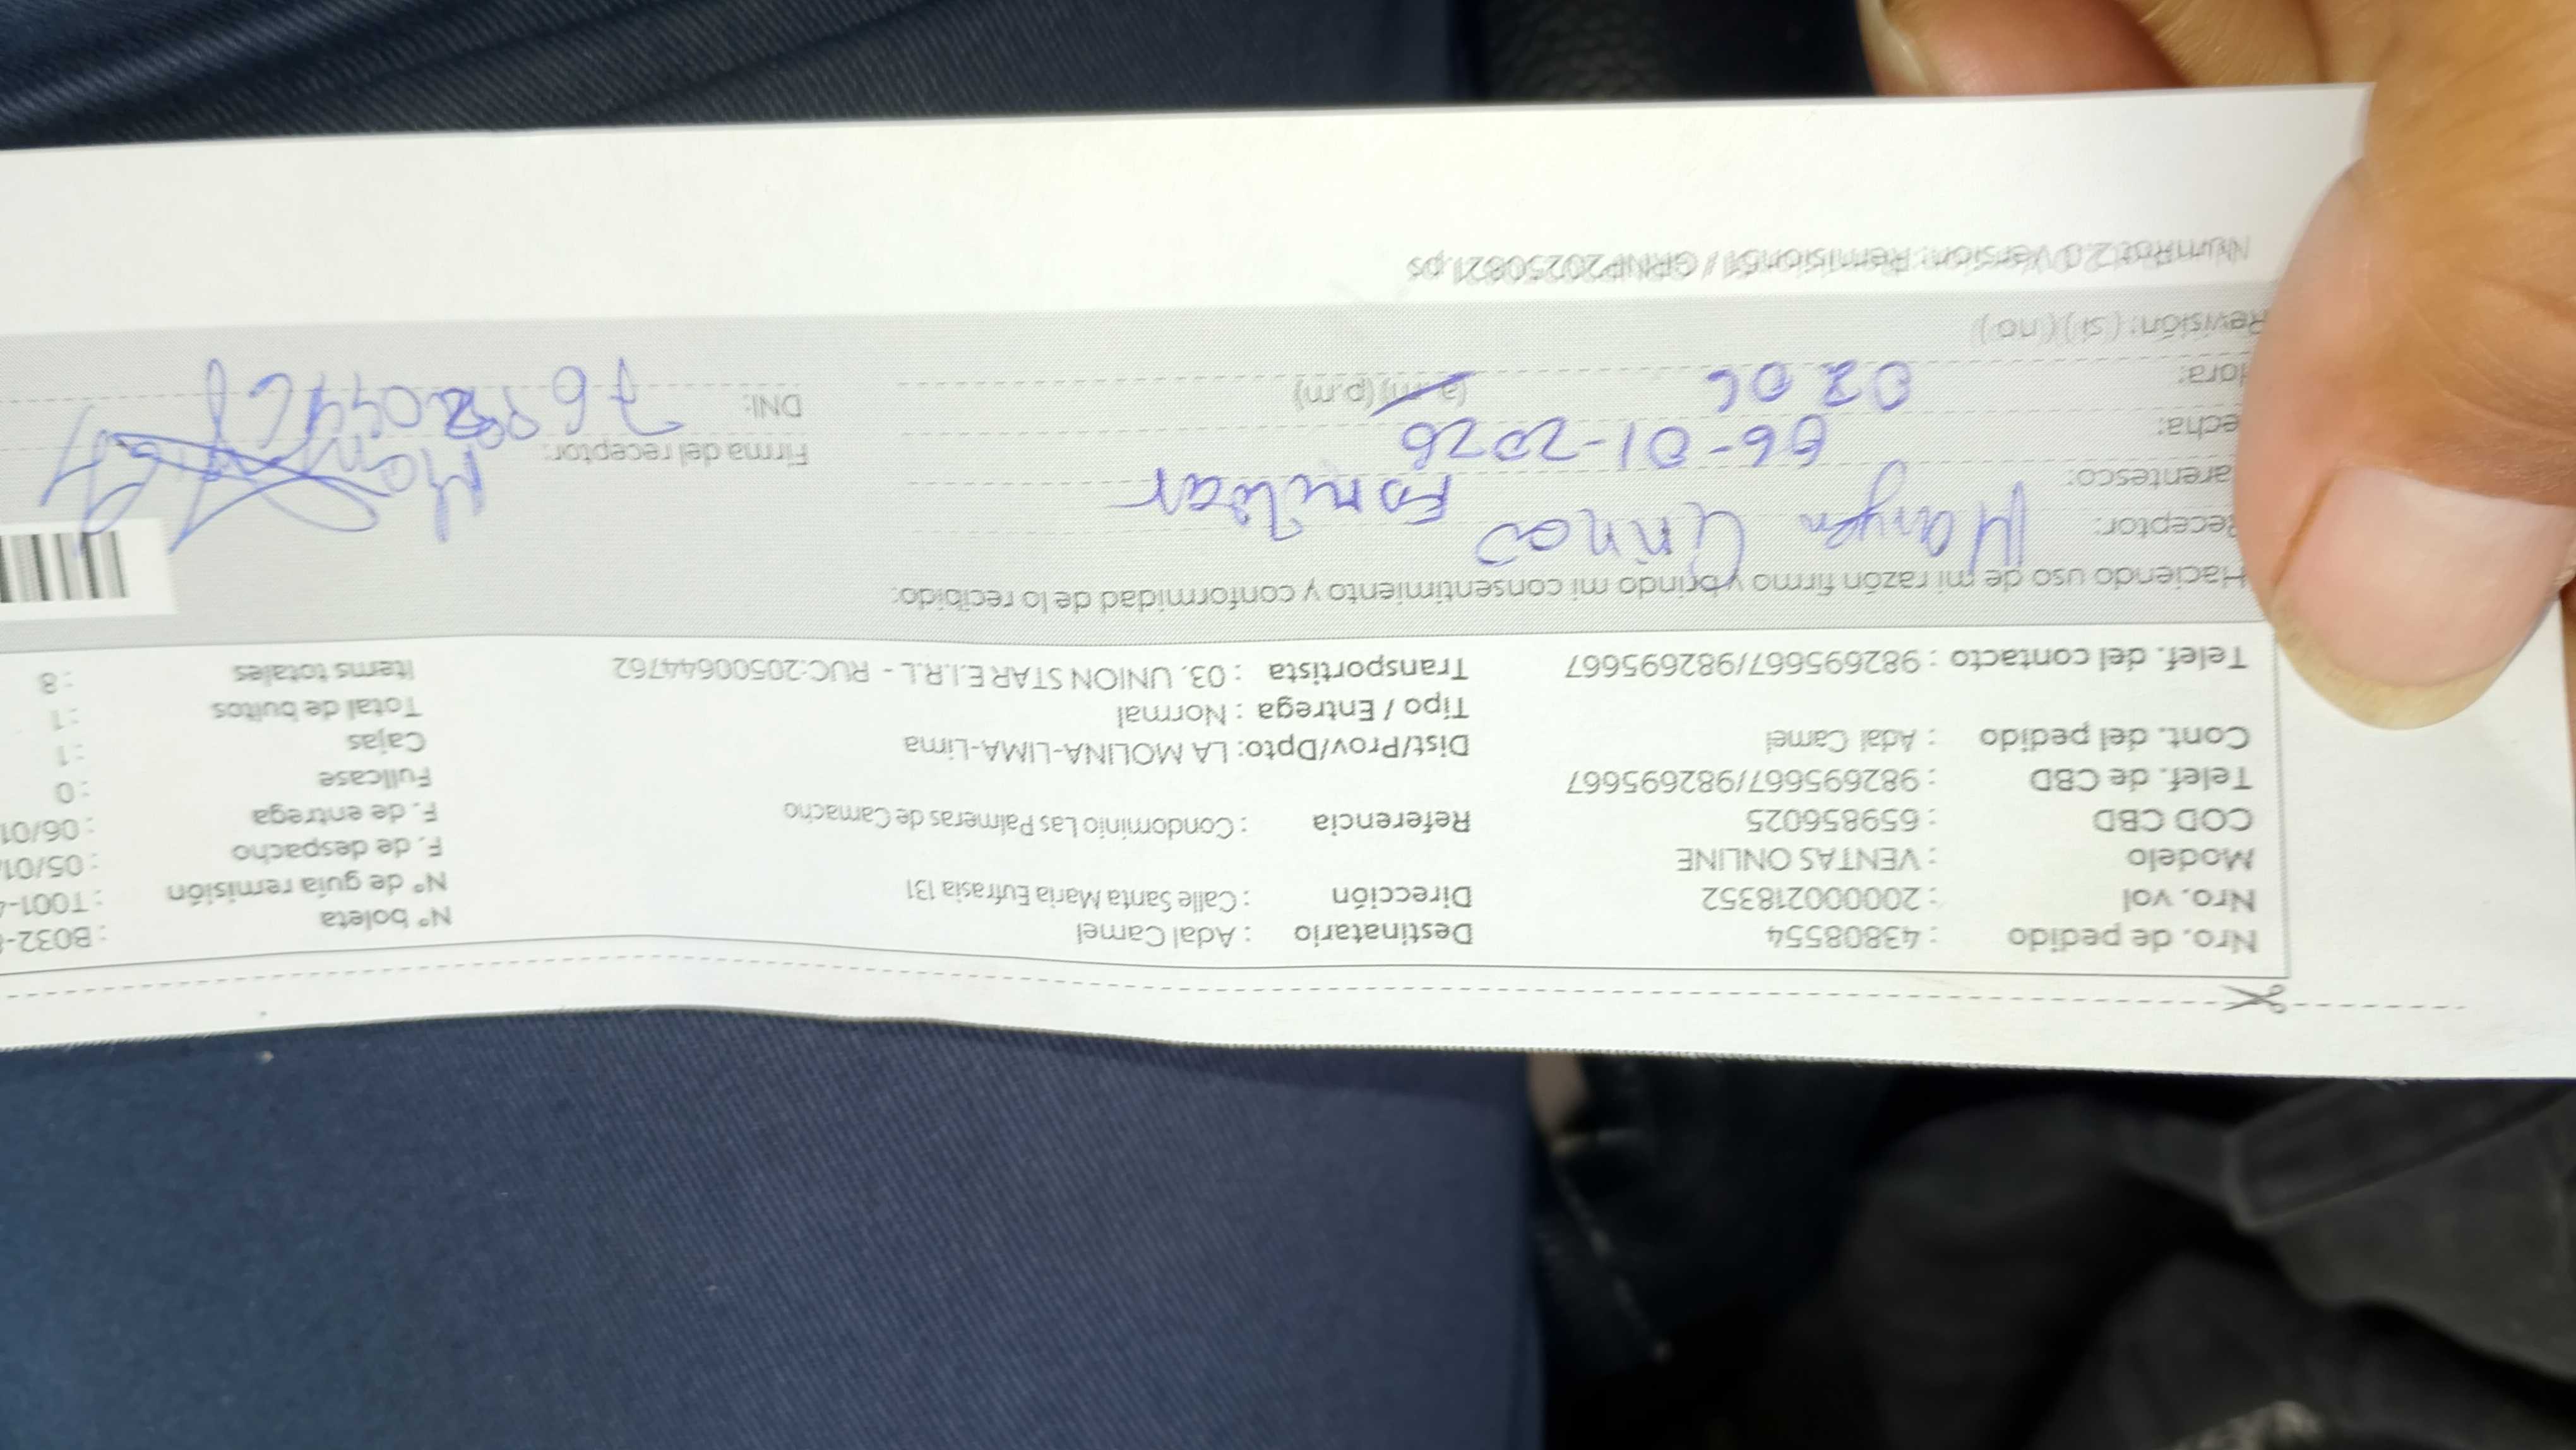 Nro. de pedido : 43808554 Destinatario : Adal Camel N° boleta : B032-
Nro. vol : 200000218352 Dirección : Calle Santa Maria Eufrasia 131 N° de guía remisión : T001-
Modelo : VENTAS ONLINE F. de despacho : 05/01
COD CBD : 659856025 Referencia : Condominio Las Palmeras de Camacho F. de entrega : 06/01
Telef. de CBD : 982695667/982695667 Fullcase : 0
Cont. del pedido : Adal Camel Dist/Prov/Dpto: LA MOLINA-LIMA-Lima Cajas : 1
Tipo / Entrega : Normal Total de bultos : 1
Telef. del contacto : 982695667/982695667 Transportista : 03. UNION STAR E.I.R.L - RUC:20500644762 Items totales : 8
Haciendo uso de mi razón firmo y brindo mi consentimiento y conformidad de lo recibido:
Receptor:
arentesco: Familiar
echa: 06-01-2026 Firma del receptor:
Hora: (a.m) (p.m) DNI:
Revisión: (si) (no)
NumRot 2.0 Versión: Remision51 / GRNP20250821.ps